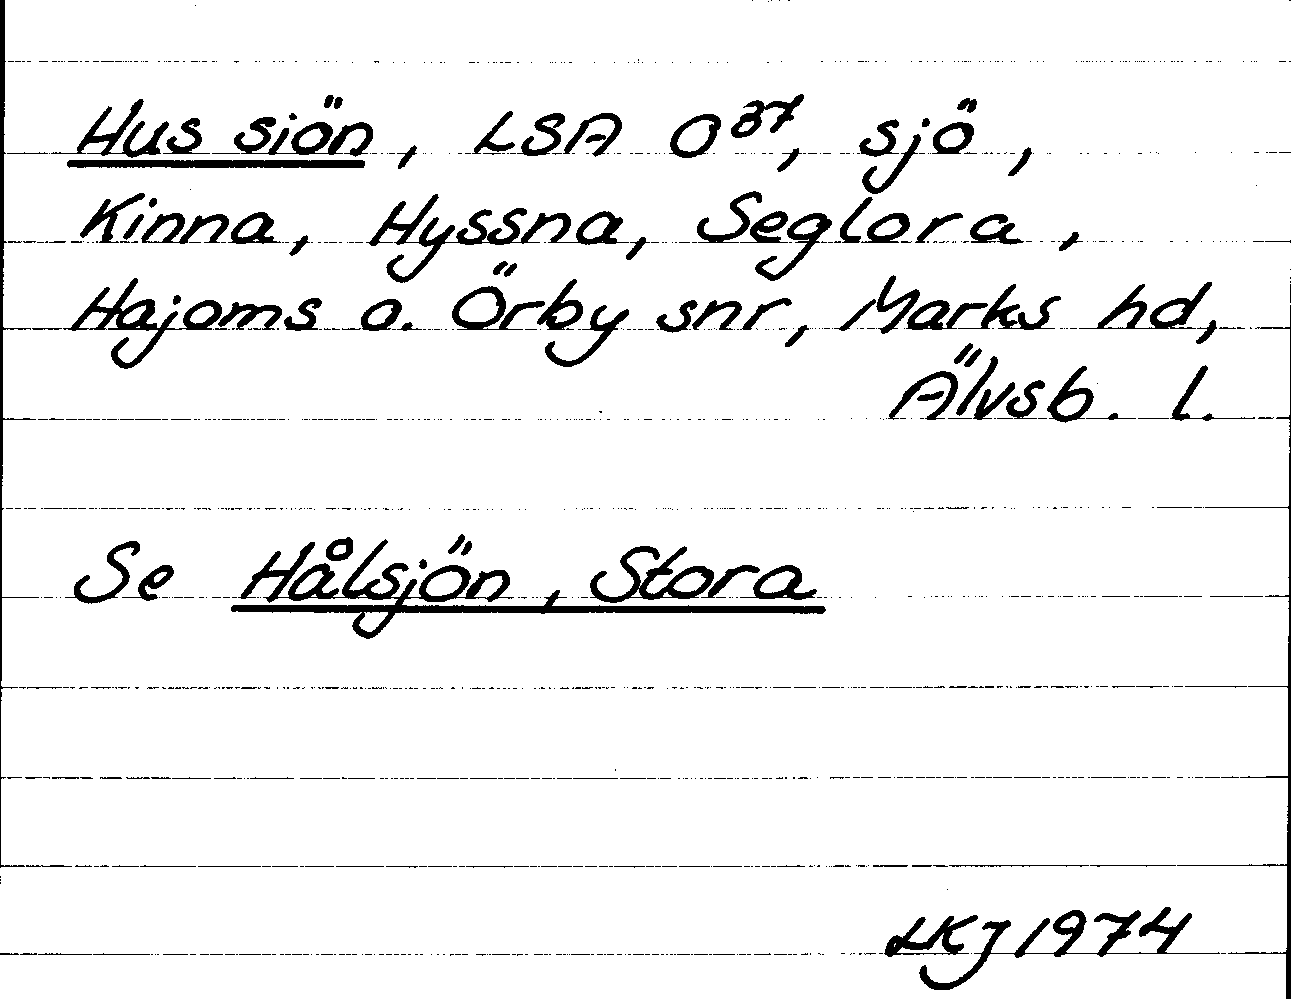 Hus siön, LSA O 37, sjö,
Kinna, Hyssna, Seglora,
Hajoms o. Örby snr, Marks hd,
Älvsb. l.
Se Hålsjön, Stora
LKJ 1974